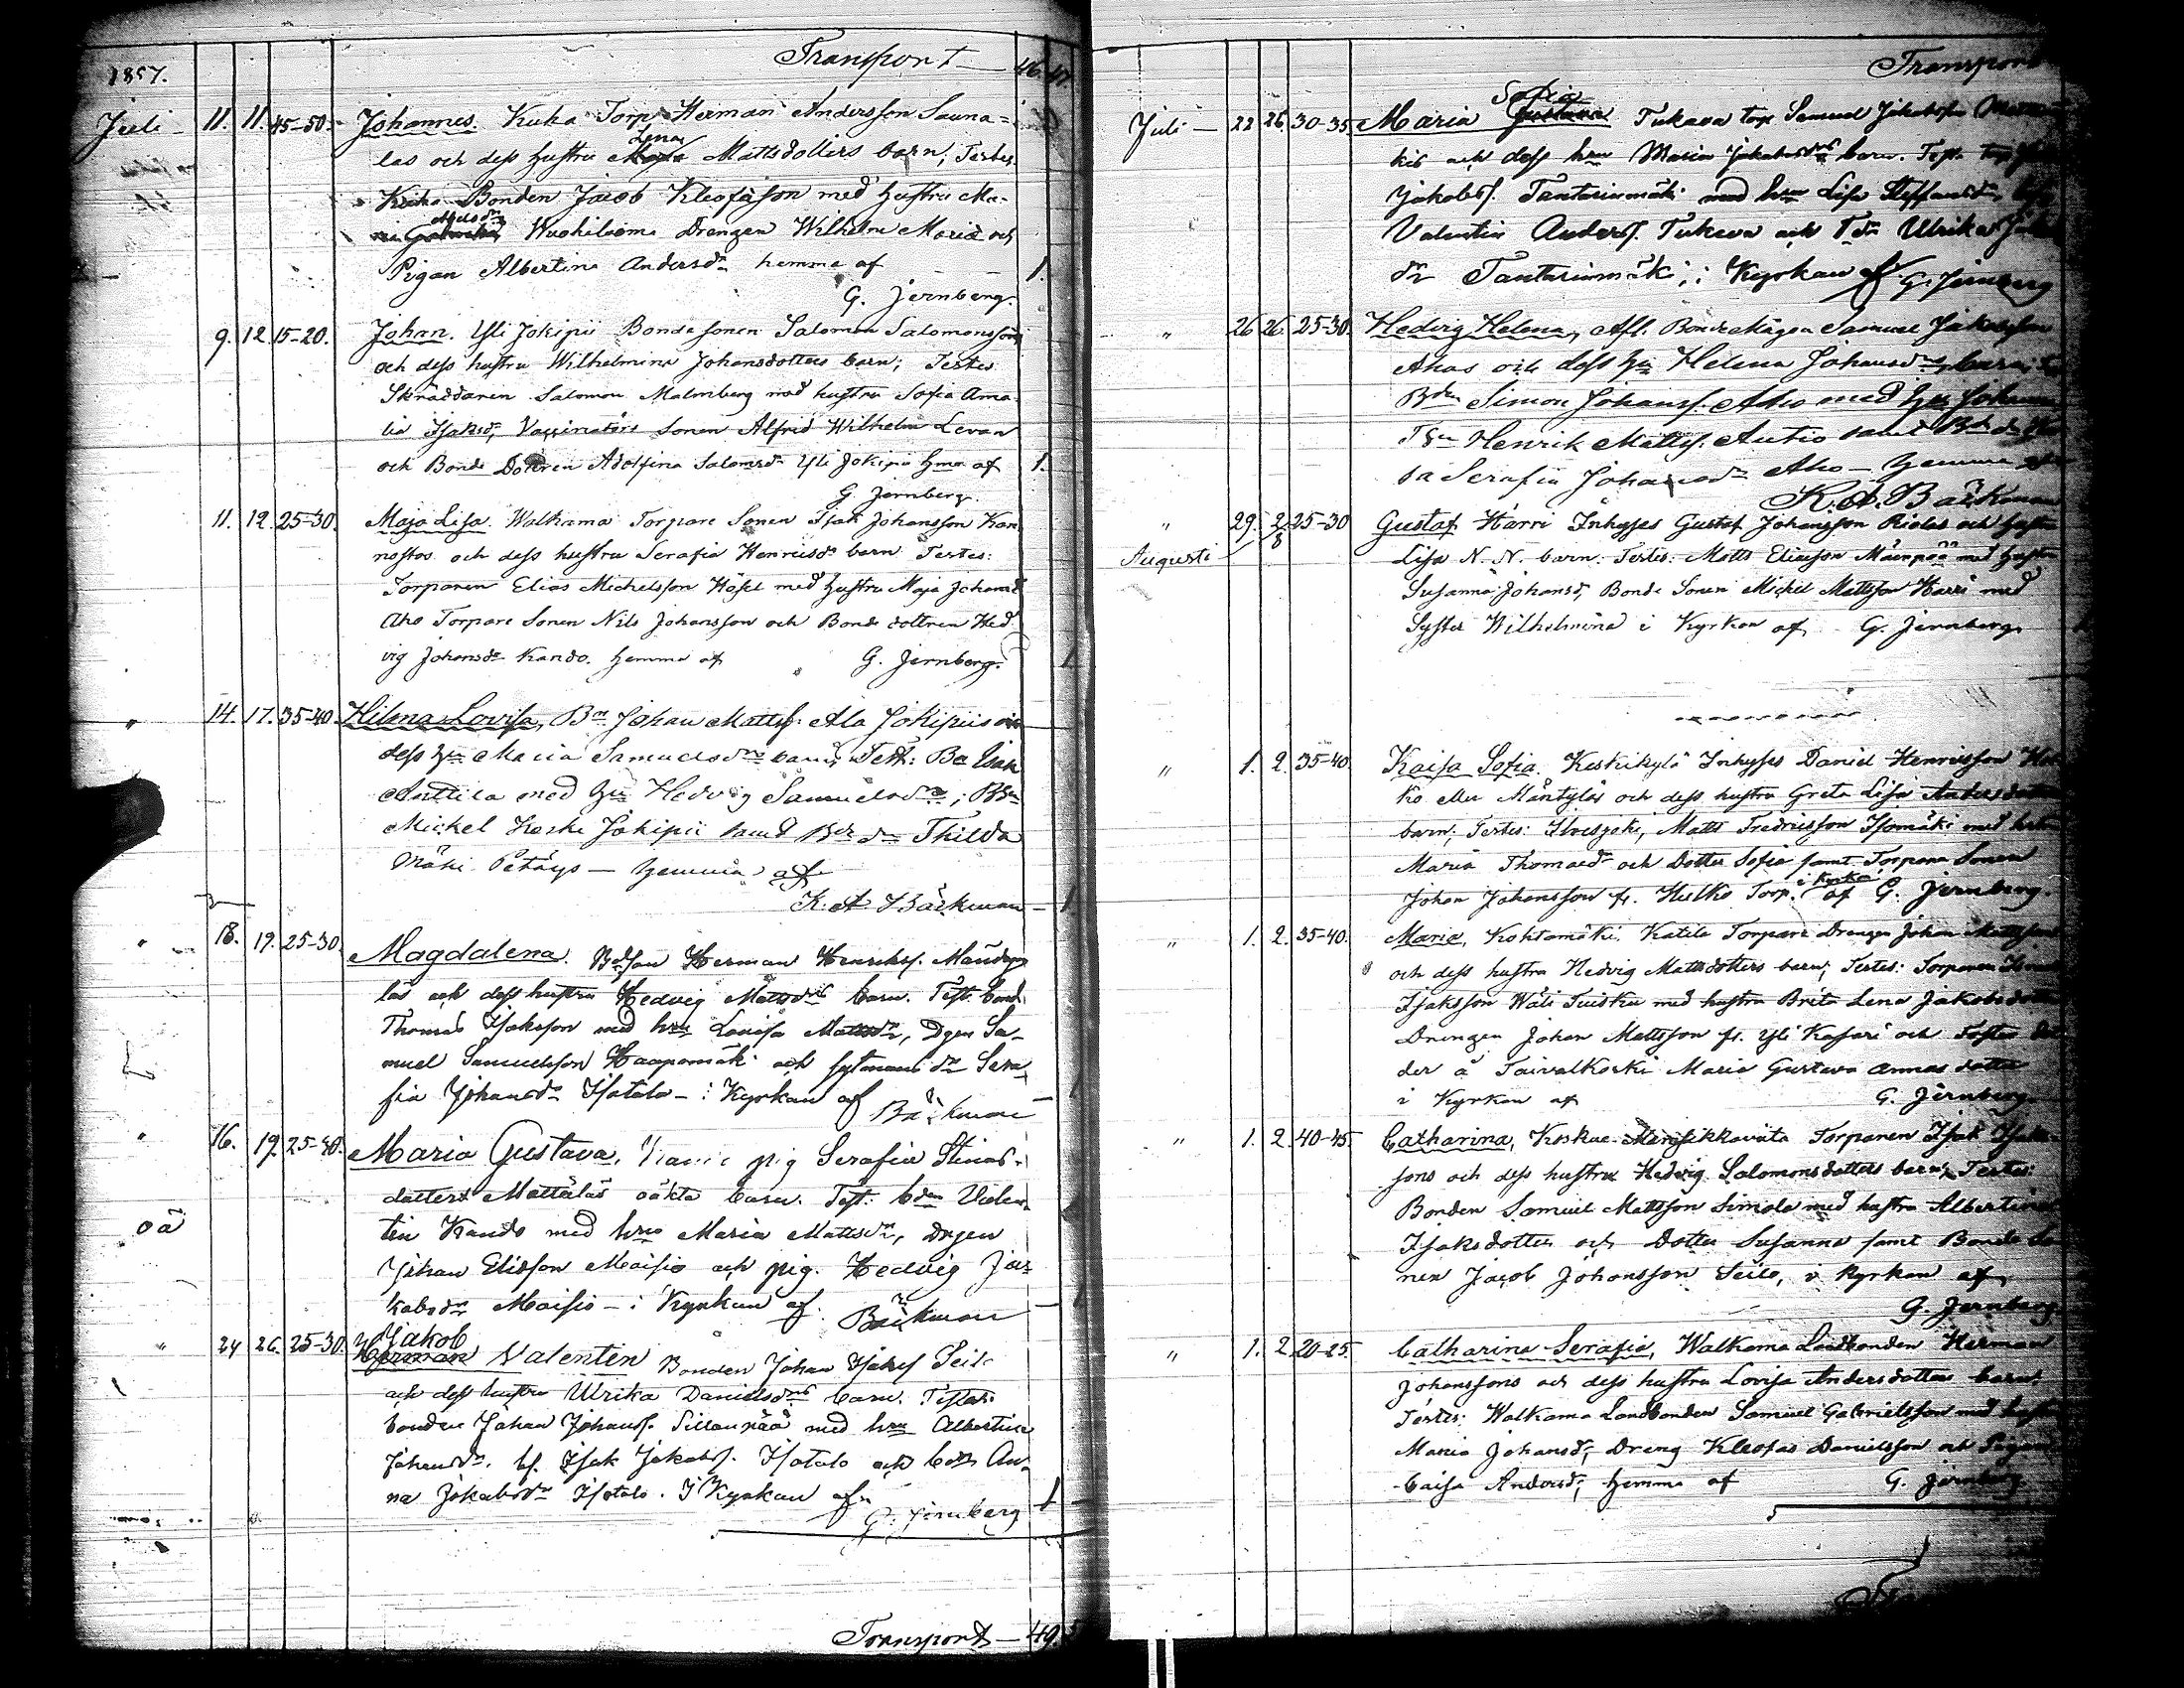 Transport 46. 47.
1857.
Juli 11. 11. 45-50. Johannes. Kuha Torp. Herman Andersson Sauna=
Lena
las och dess hustru Maja Mattsdotters barn; Testes
Kuha Bonden Jacob Kleofasson med hustru Ma-
Drengen Wilhelm och
Pigan Albertina Andersdr hemma af 1.
G. Jernberg.
9. 12. 15-20. Johan. Yli Jokipii Bonde sonen Salomon Salomonssons
och dess hustru Wilhelmina Johansdotters barn; Testes
Skräddaren Salomon Malmberg med hustru Sofia Ama-
lia Isaksdr, Vaccinatörs Sonen Alfrid Wilhelm Levan
och Bonde Dottren Adolfina Salomsdr Yli Jokipii hma af 1.
G. Jernberg.
11. 12. 25-30. Maja Lisa. Walkama Torpare Sonen Isak Johansson Kan
nostos och dess hustru Serafia Henriksdr barn Testes:
Torparen Elias Michelsson Hösel med hustru Maja Johansdr
Aho Torpare Sonen Nils Johansson och Bonde dottren Hed
vig Johansdr Kando. hemma af G. Jernberg. 1
" 14. 17. 35-40. Hilma Lovisa, Bn Johan Mattss. Ala Jokipiis och
dess hu Maria Samuelsdrs barn; Test: Bn Isak
Anttila med hu Hedvig Samuelsdr; Bsn
Michel Keski Jokipii samt Bdr Thilda
Mäki Petäys — hemma af
K. A. Bäckman 1
" 18. 19. 25-30. Magdalena. Bdson Herman Henrikss. Mändy
las och dess hustru Hedvig Mattsdrs barn. Test. bond
Thomas Isaksson med hru Lovisa Mattsdr, Dgen Sa-
muel Samuelsson Haapamäki och sytmans dr Sera
fia Johansdr Isotalo - i Kyrkan af Bäckman
" 16. 19. 25-30. Maria Gustava, pig Serafia Stinas-
dotters Mattäläs oäkta barn. Test: bden Valen-
oä
tin Kando med hru Maria Mattsdr, drgen
Johan Eliasson Maisio och pig. Hedvig Ja-
kobsdr Maisio - i Kyrkan af. Bäckman
Jakob
" 24 26. 25-30. Herman Valentin Bonden Johan Isaks. Seilo
och dess hustru Ulrika Danielsdrs barn. Testes:
bonden Johan Johans. Sillanpää med hru Albertina
Johansdr. bs. Isak Jakobs. Isotalo och bdr An-
na Jakobsdr Isotalo. I Kyrkan af 1
G. Jernberg
Transport — 49.
Transport
Sofia
Juli — 22 26 30-35 Maria Gustava Tukeva torp Samuel Jakobsson
kis och dess hru Maria Jakobsdrs barn. Test. torp
Jakobs. Tantarinmäki med hru Lisa Steffansdr,
Valentin Anders. Tukeva och Tdr Ulrika
dr Tantarinmäki; i Kyrkan af G. Jernberg
" 26 26. 25-30. Hedvig Helena, Afl. Bondemågen Samuel Jakobsson
Ahos och dess hu Helena Johansdrs barn;
Bden Simon Johanss. Aho med hu Johanna
Henrik Mattss. Autio samt Bdr
Serafia Johansdr Aho — hemma af
K. A. Bäckman
" 29. 2/8 25-30 Gustaf Harri Inhyses Gustaf Johansson Riolas och hustru
Augusti
Lisa N. N. barn. Testes: Matts Eliasson Mäenpää med hustru
Susanna Johansdr, Bonde Sonen Michel Mattsson Harri med
Syster Wilhelmina i Kyrkan af G. Jernberg
" 1. 2. 35-40. Kaisa Sofia. Keskikylä Inhyses Daniel Henriksson
ko eller Mäntyläs och dess hustru Greta Lisa Andersdotters
barn; Testes: Ilvesjoki, Matts Fredriksson Isomäki med hustru
Maria Thomasdr och Dotter Sofia samt Torpare Sonen
i kyrka
Johan Johansson fr. Hulko Torp. af G. Jernberg.
" 1. 2. 35-40. Maria, Kohtamäki. Katila Torpare Drengen Johan Mattssons
och dess hustru Hedvig Mattsdotters barn; Testes: Torparen
Isaksson Wäli Tuisku med hustru Brita Lena Jakobsdotter
Drengen Johan Mattsson fr. Yli Kasari och Foster
der å Taivalkoski Maria Gustava Annasdotter
i Kyrkan af G. Jernberg
" 1. 2. 40-45. Catharina, Koskue Torparen Isak Isaks-
sons och dess hustru Hedvig Salomonsdotters barn; Testes:
Bonden Samuel Mattsson Simola med hustru Albertina
Isaksdotter och Dotter Susanna samt Bonde So
nen Jacob Johansson Seilo, i Kyrkan af
G. Jernberg
" 1. 2. 20-25. Catharina Serafia, Walkama Landbonden Herman
Johanssons och dess hustru Lovisa Andersdotters barn;
Testes: Walkama Landbonden Samuel Gabrielsson med hustru
Maria Johansdr, Dreng Kleofas Danielsson och Pigan
Caisa Andersdr, hemma af G. Jernberg